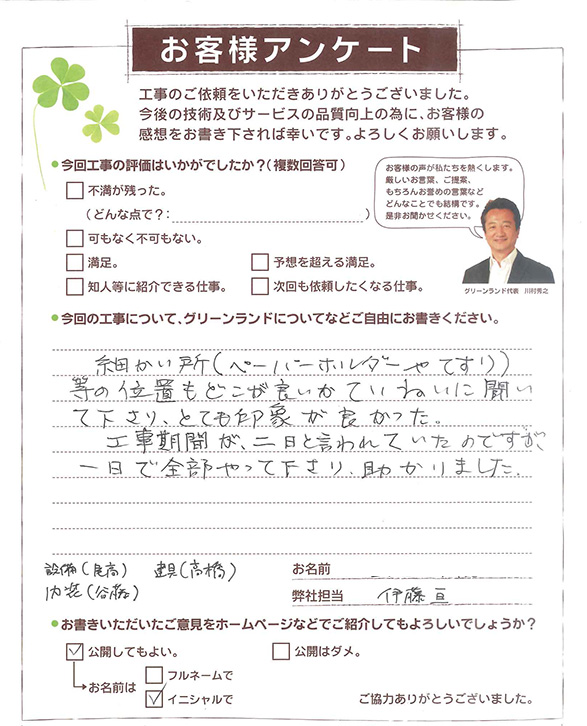 お客様アンケート
工事のご依頼をいただきありがとうございました。
今後の技術及びサービスの品質向上の為に、お客様の
感想をお書き下されば幸いです。よろしくお願いします。
●今回工事の評価はいかがでしたか?(複数回答可)
不満が残った。
(どんな点で?:
可もなく不可もない。
満足。
予想を超える満足。
知人等に紹介できる仕事。
次回も依頼したくなる仕事。
お客様の声が私たちを熱くします。
厳しいお言葉、ご提案、
もちろんお誉めの言葉など
どんなことでも結構です。
是非お聞かせください。
グリーンランド代表 川村秀之
●今回の工事について、グリーンランドについてなどご自由にお書きください。
細かい所(ペーパーホルダーやてすり)
等の位置もどこが良いかていねいに聞い
て下さり、とても印象が良かった。
工事期間が、二日と言われていたのですが、
一日で全部やって下さり、助かりました。
設備(尾高) 建具(高橋)
内装(谷藤)
お名前
弊社担当 伊藤亘
●お書きいただいたご意見をホームページなどでご紹介してもよろしいでしょうか?
公開してもよい。
公開はダメ。
お名前は
フルネームで
イニシャルで
ご協力ありがとうございました。